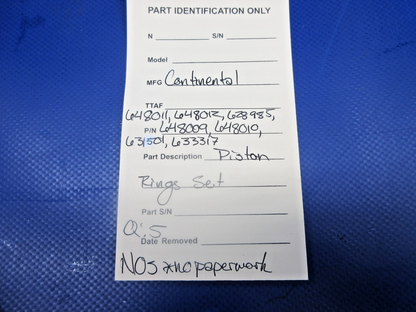 PART IDENTIFICATION ONLY
N S/N
Model
MFG Continental
TTAF
648011, 648012, 628985,
P/N 648009, 648010,
631501, 633317
Part Description Piston
Rings Set
Part S/N
Q:5
Date Removed
NOS *no paperwork